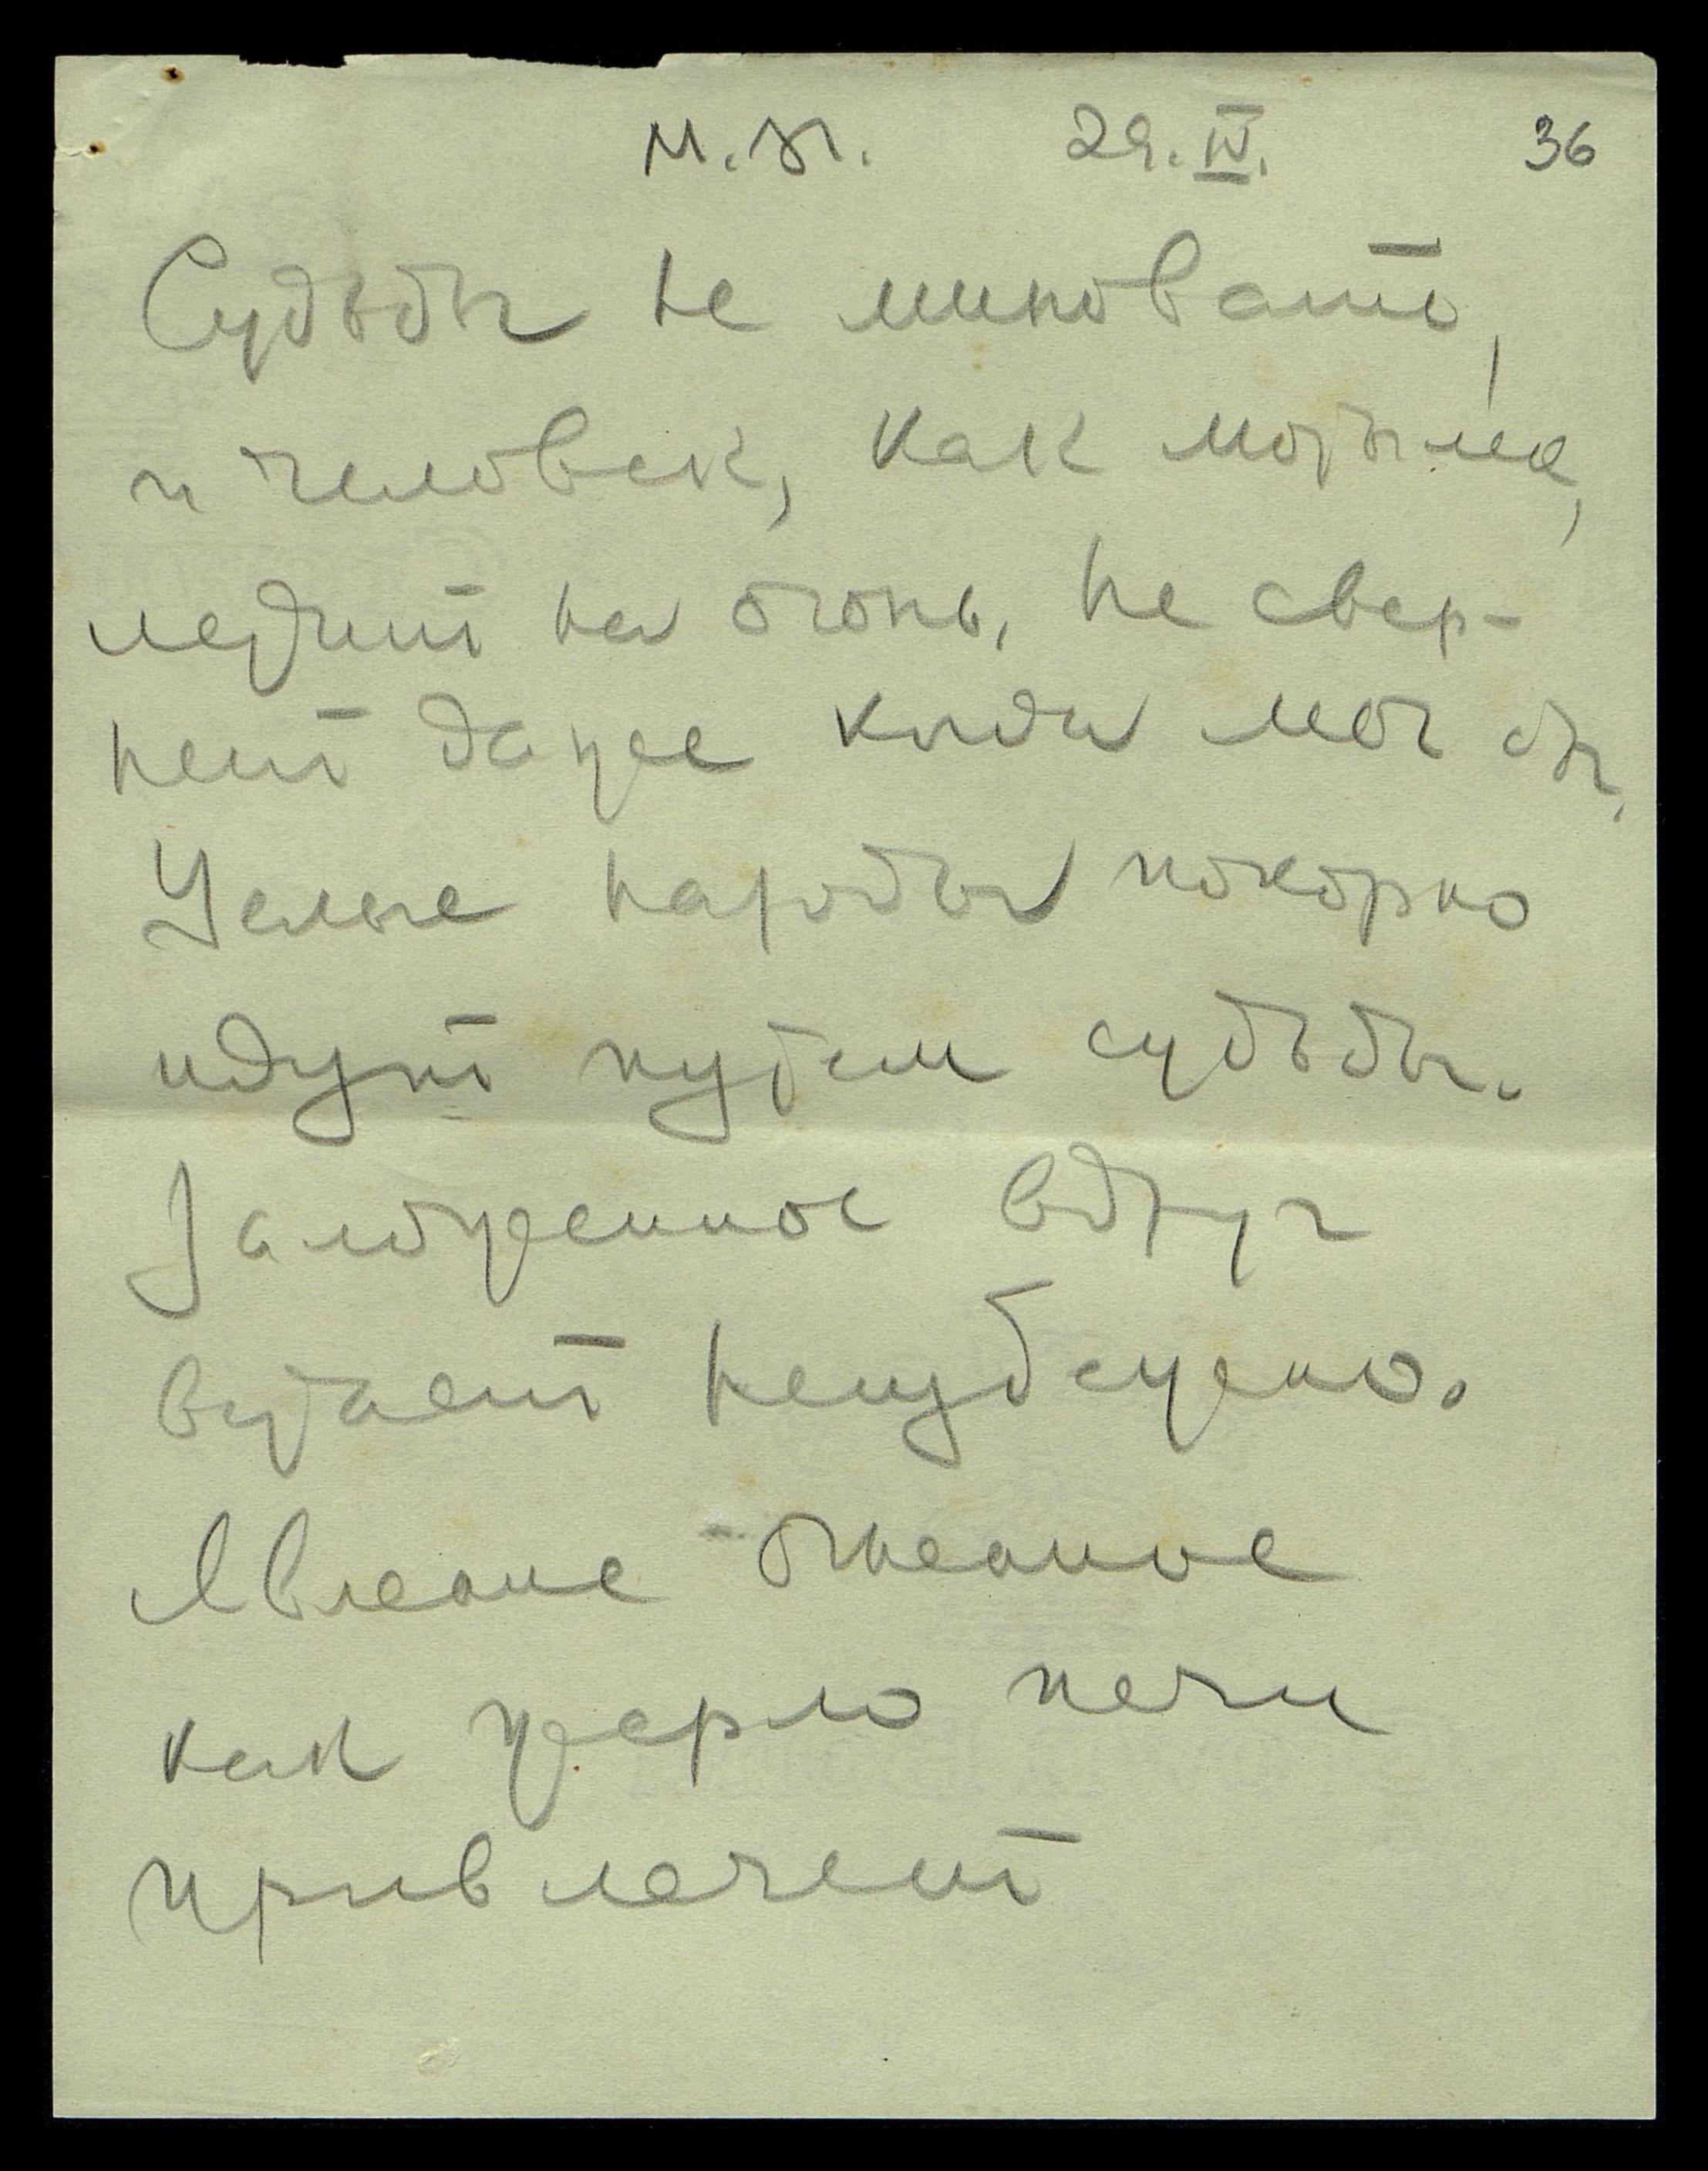 М.К. 29.IV. 36
Судьбы не миновать,
и человек, как мотылек,
летит на огонь, не свер-
нет даже когда мог бы.
Целые народы покорно
идут путем судьбы.
Заложенное вдруг
встает неизбежно.
Явление огненное
как жерло печи
привлечет